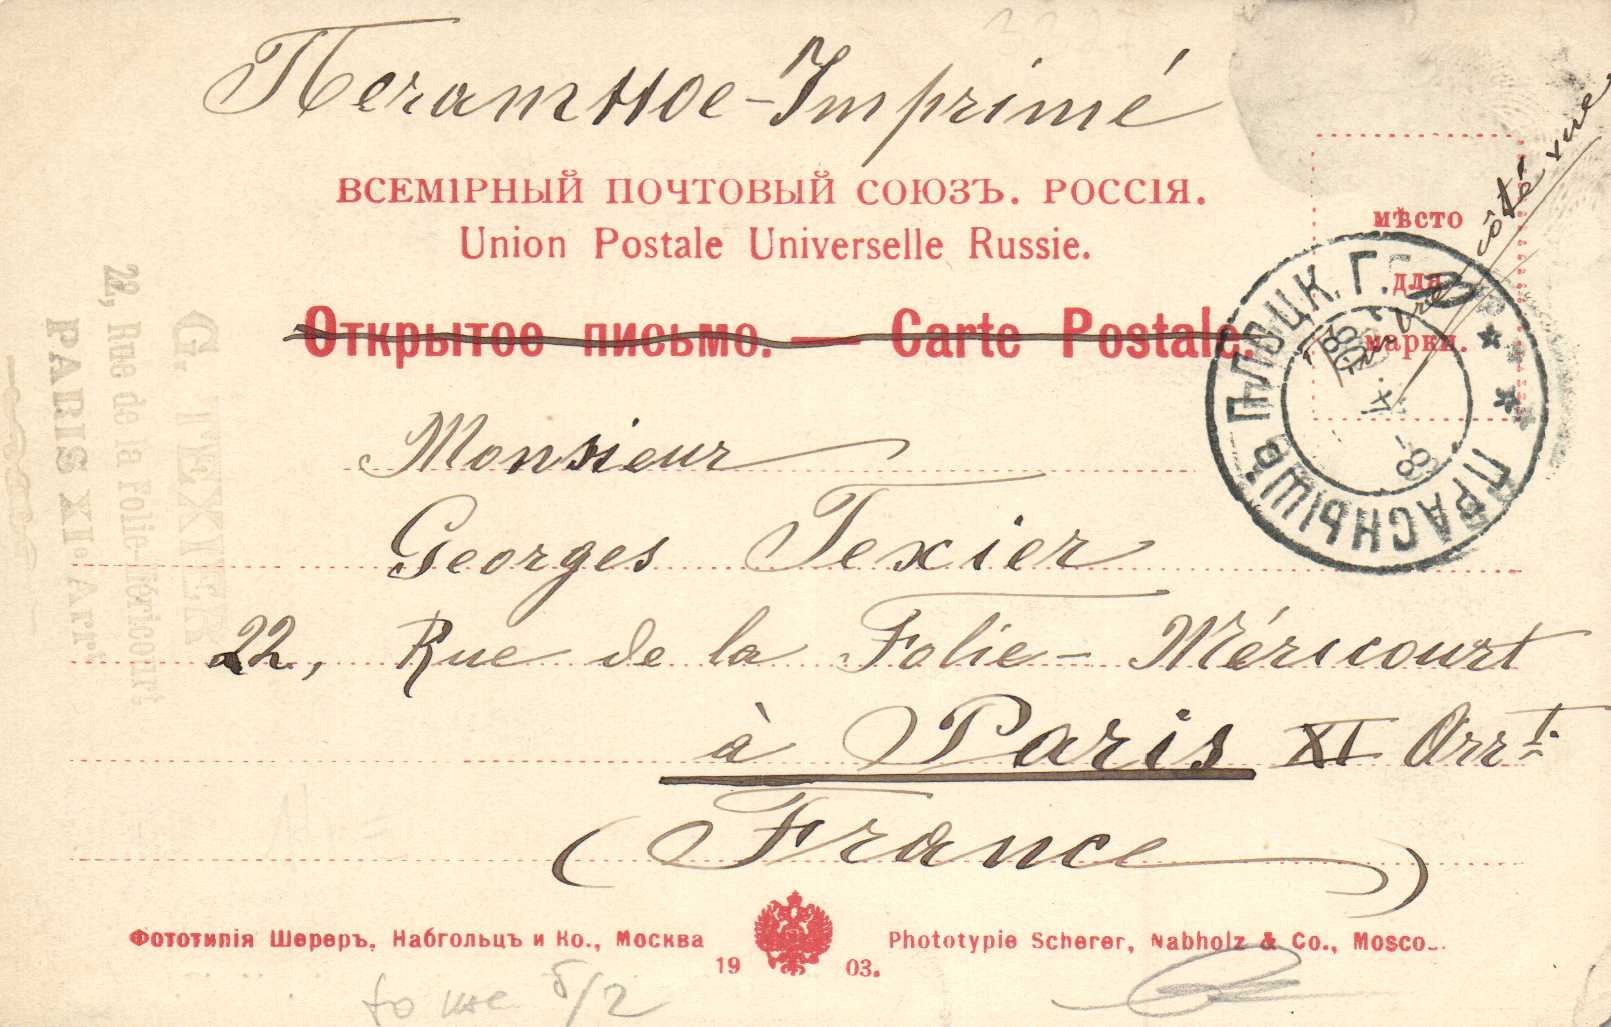 Печатное - Imprimé
ВСЕМІРНЫЙ ПОЧТОВЫЙ СОЮЗЪ. РОССІЯ.
Union Postale Universelle Russie.
мѣсто
для
марки.
Timbre côté vue
Открытое письмо. — Carte Postale.
ПРАСНЫШЪ ПЛОЦК. Г.
Monsieur
Georges Texier
22, Rue de la Folie-Méricourt
à Paris XI Arrt.
(France)
G. TEXIER
22, Rue de la Folie-Méricourt
PARIS XIe Arrt
Фототипія Шереръ, Набгольцъ и Ко., Москва
1903.
Phototypie Scherer, Nabholz & Co., Mosco